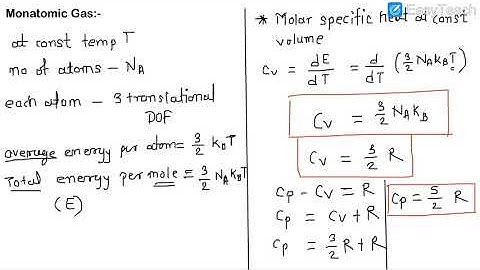 Monatomic Gas:-
at const temp T
no of atoms - N_A
each atom - 3 translational
DOF
average energy per atom = 3/2 k_B T
Total energy per mole = 3/2 N_A k_B T
(E)
EasyTeach
* Molar specific heat at const
volume
C_v = dE/dT = d/dT (3/2 N_A k_B T)
C_v = 3/2 N_A k_B
C_v = 3/2 R
C_p - C_v = R
C_p = C_v + R
C_p = 3/2 R + R
C_p = 5/2 R